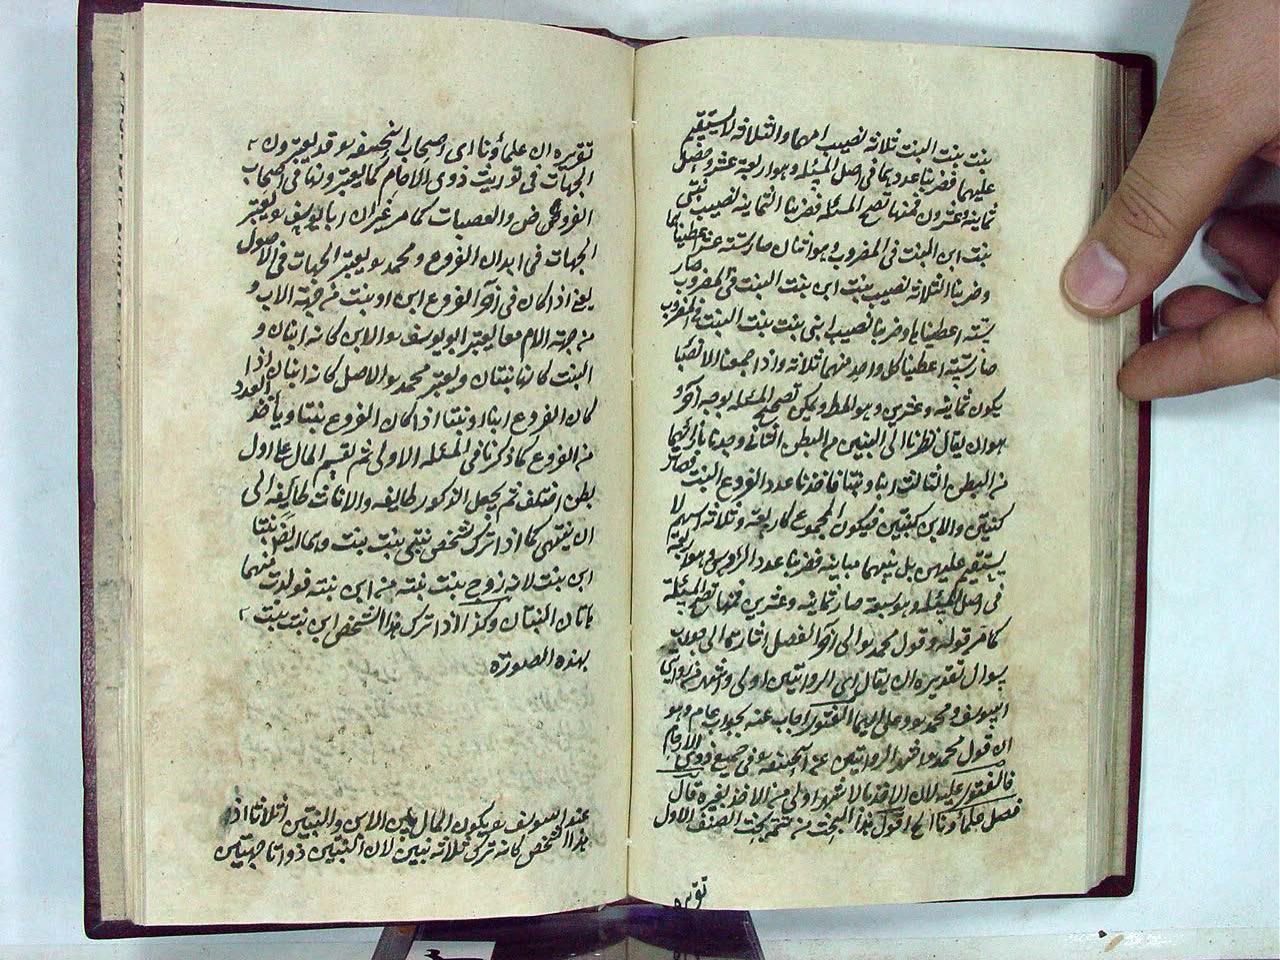 بنت بنت البنت ثلاثة نصيب امهما والثلاثة لا يستقيم
عليهما فضربنا عددهما فى اصل المسئله وهو اربعة عشر وحصل
ثمانية وعشرون فمنها تصح المسئله فضربنا الثمانية نصيب بنتى
بنت ابن البنت فى المضروب وهو اثنان صار ستة عشر اعطيناهما
وضربنا الثلاثة نصيب بنت ابن بنت البنت فى المضروب صار
ستة اعطيناها وضربنا نصيب ابنى بنت بنت البنت فى المضروب
صار ستة اعطينا كل واحد منهما ثلاثة واذا جمعنا الانصباء
يكون ثمانية وعشرين وهو المط ويمكن تصحيح المسئله بوجه آخر و
هو ان يقال نظرنا الى البنتين من البطن الثانى وجدنا بازائهما
من البطن الثالث ابنا وبنتا فاخذنا عدد الفروع البنت فصار
كبنتين والابن كبنتين فيكون المجموع كاربعة وثلاثة اسهم لا
يستقيم عليهن بل بينهما مباينة فضربنا عدد الرؤس وهو اربعة
فى اصل المسئله وهو سبعة صار ثمانية وعشرين فمنها تصح المسئلة
كما مر قوله وقول محمد الى آخر الفصل اشارة الى جواب
سوال تقديره ان يقال اى الروايتين اولى واشهر من رواية
ابيوسف ومحمد وعلى ايهما الفتوى اجاب عنه بجواب عام وهو
ان قول محمد اشهر الروايتين عن ابيحنيفه فى جميع ذوى الارحام
فالفتوى عليه لان الاخذ بالاشهر اولى من الاخذ بغيره قال
فصل علماؤنا الخ اقول هذا البحث من تتمة بحث الصنف الاول
تقريره
تقريره ان علماؤنا اى اصحاب ابيحنيفه قد يعتبرون
الجهات فى توريث ذوى الارحام كما يعتبرونها فى اصحاب
الفروض والعصبات كما مر غير ان ابا يوسف يعتبر
الجهات فى ابدان الفروع ومحمد يعتبر الجهات فى الاصول
يعنى اذا كان فى آخر الفروع ابن او بنت من جهة الاب و
من جهة الام معا يعتبر ابو يوسف الابن كانه ابنان و
البنت كانها بنتان ويعتبر محمد الاصل كانه ابنان اذا
كان الفروع ابنا وبنتا اذا كان الفروع بنتا ويأخذ العدد
من الفروع كما ذكرنا فى المسئله الاولى ثم يقسم المال على اول
بطن اختلف ثم يجعل الذكور طائفة والاناث طائفة الى
ان ينتهى كما اذا ترك شخص بنتى بنت بنت وهما ايضا بنتا
ابن بنت لانه زوج بنت بنته من ابن بنته فولدت منهما
هاتان البنتان وكذا اذا ترك هذا الشخص ابن بنت بنت
بهذه الصورة
عند ابيوسف يكون المال بين الابن والبنتين اثلاثا اذ
هذا الشخص كانه ترك ثلاثة بنين لان البنتين ذواتا جهتين